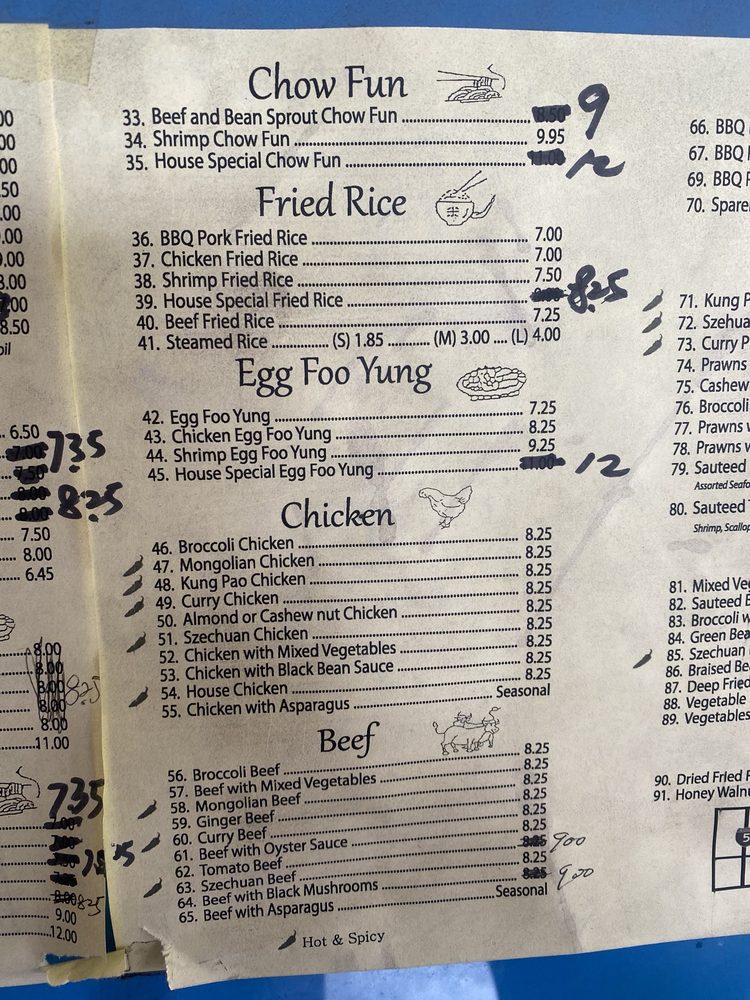 6.50
7.35
8.25
7.50
8.00
6.45
8.00
8.00
8.00
8.00
8.00
11.00
8.25
7.35
8.25
9.00
12.00
Chow Fun
33. Beef and Bean Sprout Chow Fun 8.50 9
34. Shrimp Chow Fun 9.95
35. House Special Chow Fun 11.00 12
Fried Rice
36. BBQ Pork Fried Rice 7.00
37. Chicken Fried Rice 7.00
38. Shrimp Fried Rice 7.50
39. House Special Fried Rice 8.25
40. Beef Fried Rice 7.25
41. Steamed Rice (S) 1.85 (M) 3.00 (L) 4.00
Egg Foo Yung
42. Egg Foo Yung 7.25
43. Chicken Egg Foo Yung 8.25
44. Shrimp Egg Foo Yung 9.25
45. House Special Egg Foo Yung 11.00 12
Chicken
46. Broccoli Chicken 8.25
47. Mongolian Chicken 8.25
48. Kung Pao Chicken 8.25
49. Curry Chicken 8.25
50. Almond or Cashew nut Chicken 8.25
51. Szechuan Chicken 8.25
52. Chicken with Mixed Vegetables 8.25
53. Chicken with Black Bean Sauce 8.25
54. House Chicken 8.25
55. Chicken with Asparagus Seasonal
Beef
56. Broccoli Beef 8.25
57. Beef with Mixed Vegetables 8.25
58. Mongolian Beef 8.25
59. Ginger Beef 8.25
60. Curry Beef 8.25
61. Beef with Oyster Sauce 8.25
62. Tomato Beef 8.25 9.00
63. Szechuan Beef 8.25
64. Beef with Black Mushrooms 8.25 9.00
65. Beef with Asparagus Seasonal
Hot & Spicy
66. BBQ
67. BBQ
69. BBQ
70. Spare
71. Kung P
72. Szehua
73. Curry P
74. Prawns
75. Cashew
76. Broccoli
77. Prawns w
78. Prawns w
79. Sauteed
Assorted Seafo
80. Sauteed
Shrimp, Scallop
81. Mixed Veg
82. Sauteed E
83. Broccoli w
84. Green Bea
85. Szechuan
86. Braised Be
87. Deep Fried
88. Vegetable
89. Vegetables
90. Dried Fried
91. Honey Walnu
5